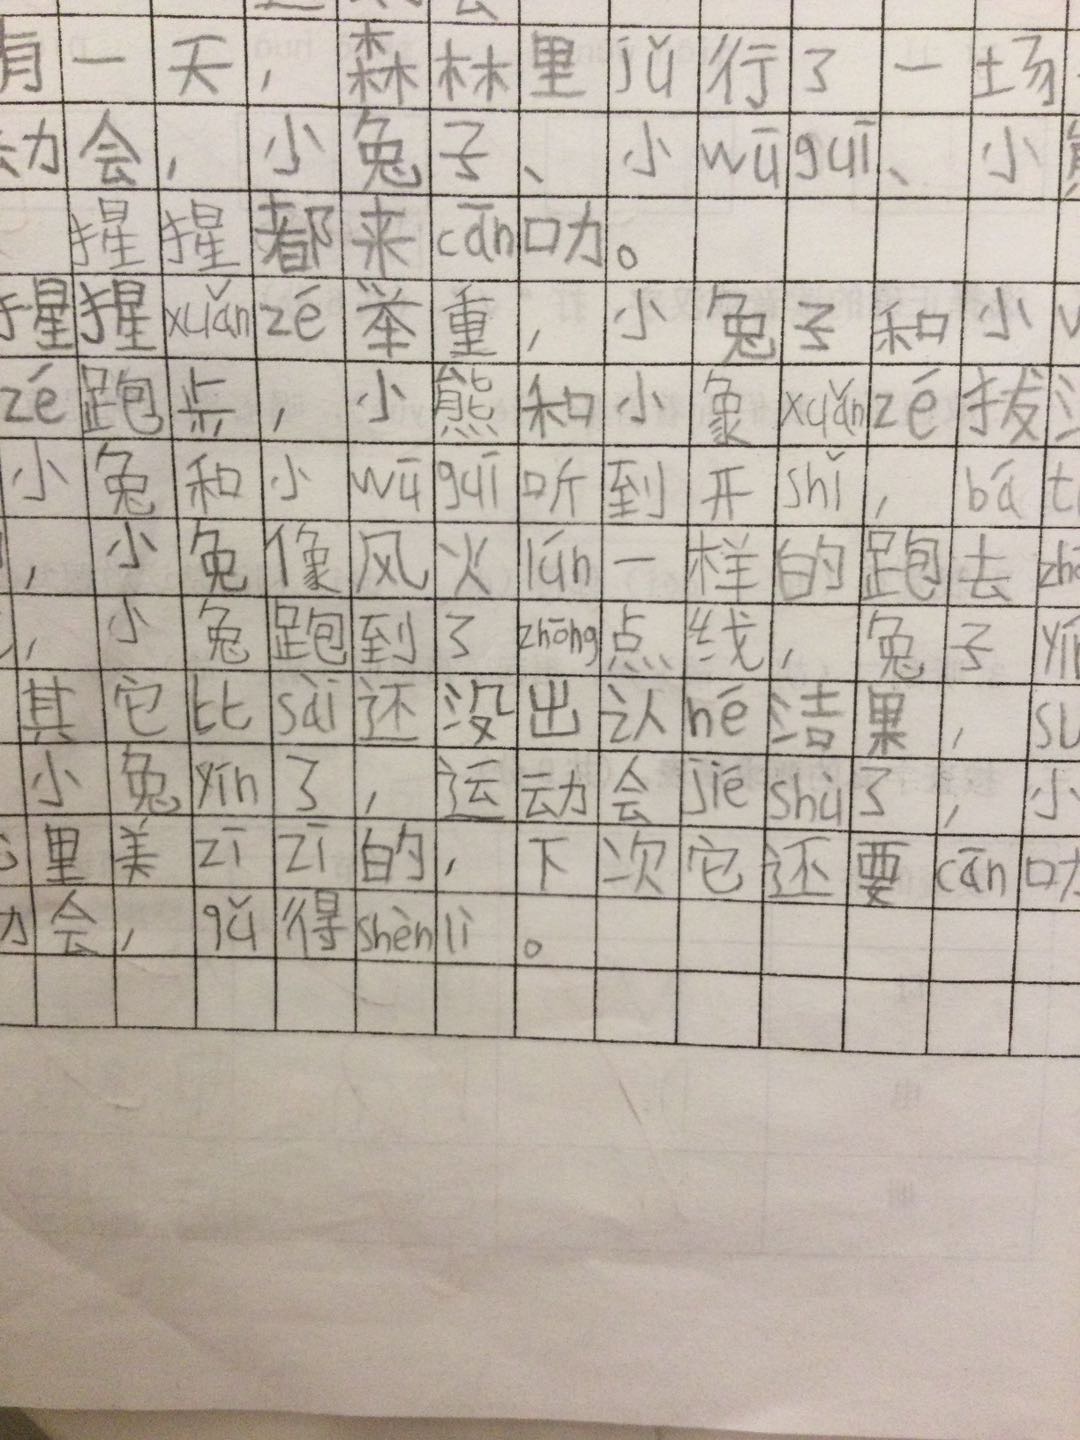 有一天，森林里jǔ行了一场
动会，小兔子、小wūguī、小熊
猩猩都来cān叻。
猩猩xuǎnzé举重，小兔子和小w
zé跑点，小熊和小象xuǎnzé拔
小兔和小wūguī听到开shǐ，bá t
，小兔像风火lún一样的跑去zh
，小兔跑到了zhōng点线，兔子yín
其它比sài还没出认né洁果，su
小兔yín了，运动会jiéshù了，小
心里美zīzī的，下次它还要cān叻
动会，qǔ得shènlì。